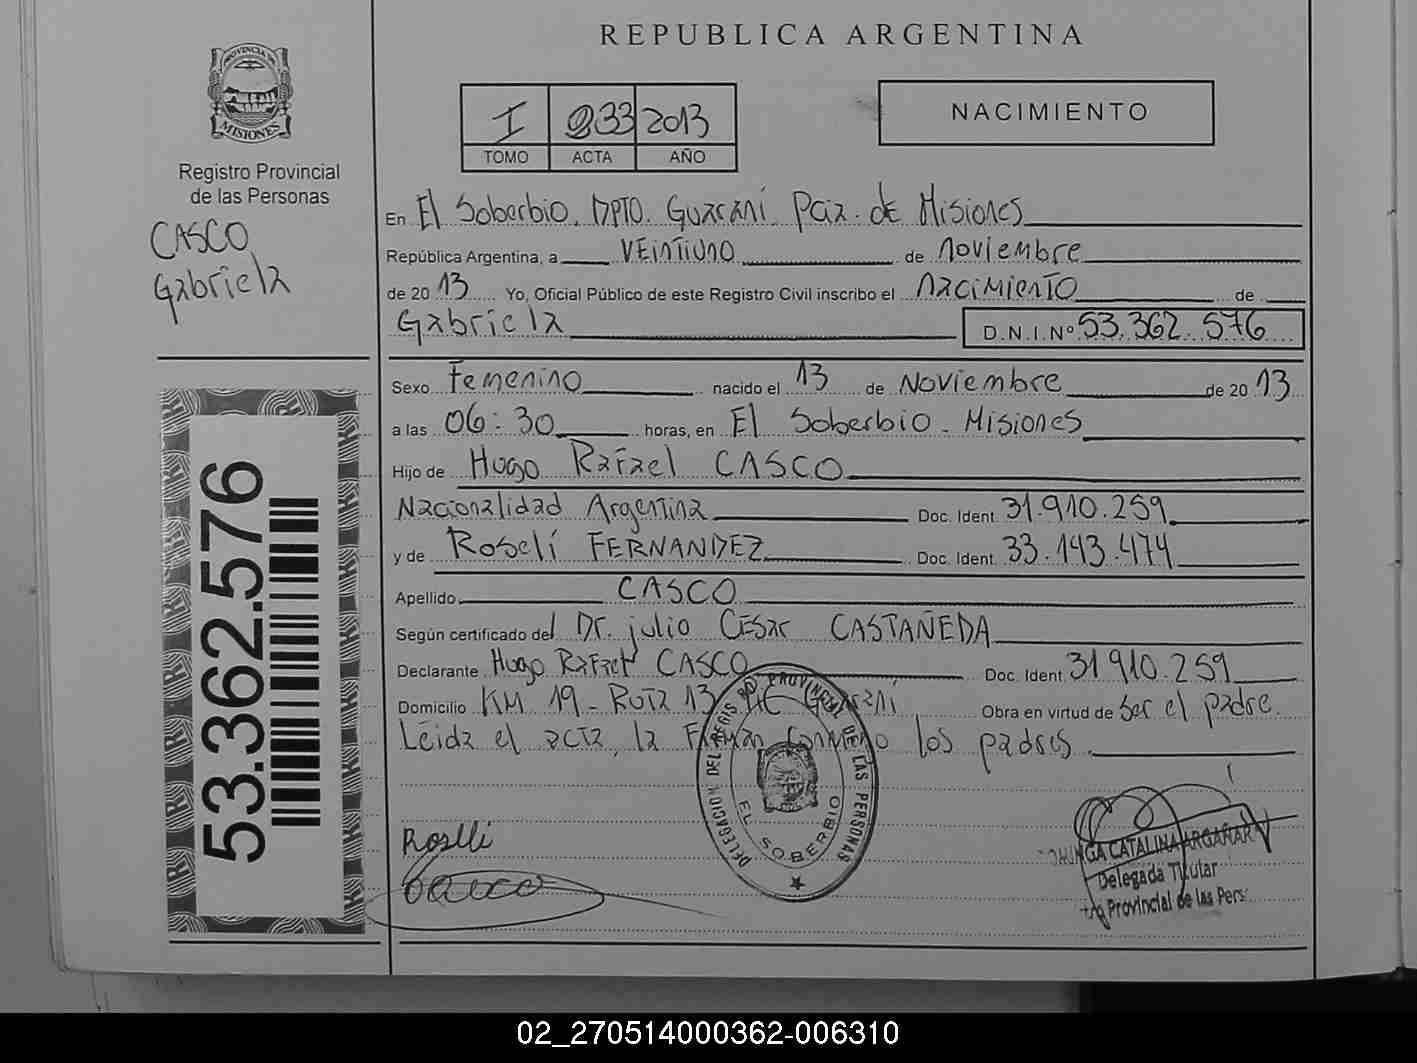 REPUBLICA ARGENTINA
PROVINCIA DE
MISIONES
Registro Provincial
de las Personas
CASCO
Gabriela
53.362.576
I 933 2013
TOMO ACTA AÑO
NACIMIENTO
En El Soberbio. DPTO. Guaraní. Pcia. de Misiones
República Argentina, a VEINTIUNO de Noviembre
de 2013 Yo, Oficial Público de este Registro Civil inscribo el NACIMIENTO de
Gabriela D.N.I.Nº 53.362.576
Sexo Femenino nacido el 13 de Noviembre de 2013
a las 06:30 horas, en El Soberbio - Misiones
Hijo de Hugo Rafael CASCO
Nacionalidad Argentina Doc. Ident. 31.910.259
y de Roselí FERNANDEZ Doc. Ident. 33.143.474
Apellido CASCO
Según certificado del Dr. julio César CASTAÑEDA
Declarante Hugo Rafael CASCO Doc. Ident. 31.910.259
Domicilio KM 19 - Ruta 13 Guaraní Obra en virtud de Ser el padre.
Léida el acta, la Firman Conmigo los padres.
DELEGACION DEL REGISTRO PROVINCIAL DE LAS PERSONAS
EL SOBERBIO
Roselli
Casco
CATALINA ARGAÑARA
Delegada Titular
Provincial de las Pers
02_270514000362-006310